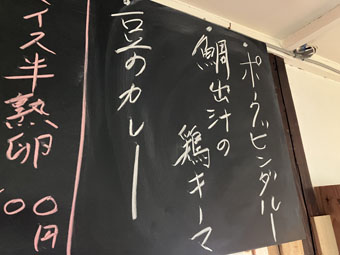 ・ポークビンダルー
・鯛出汁の
鶏キーマ
・豆のカレー
イス半熟卵
00円